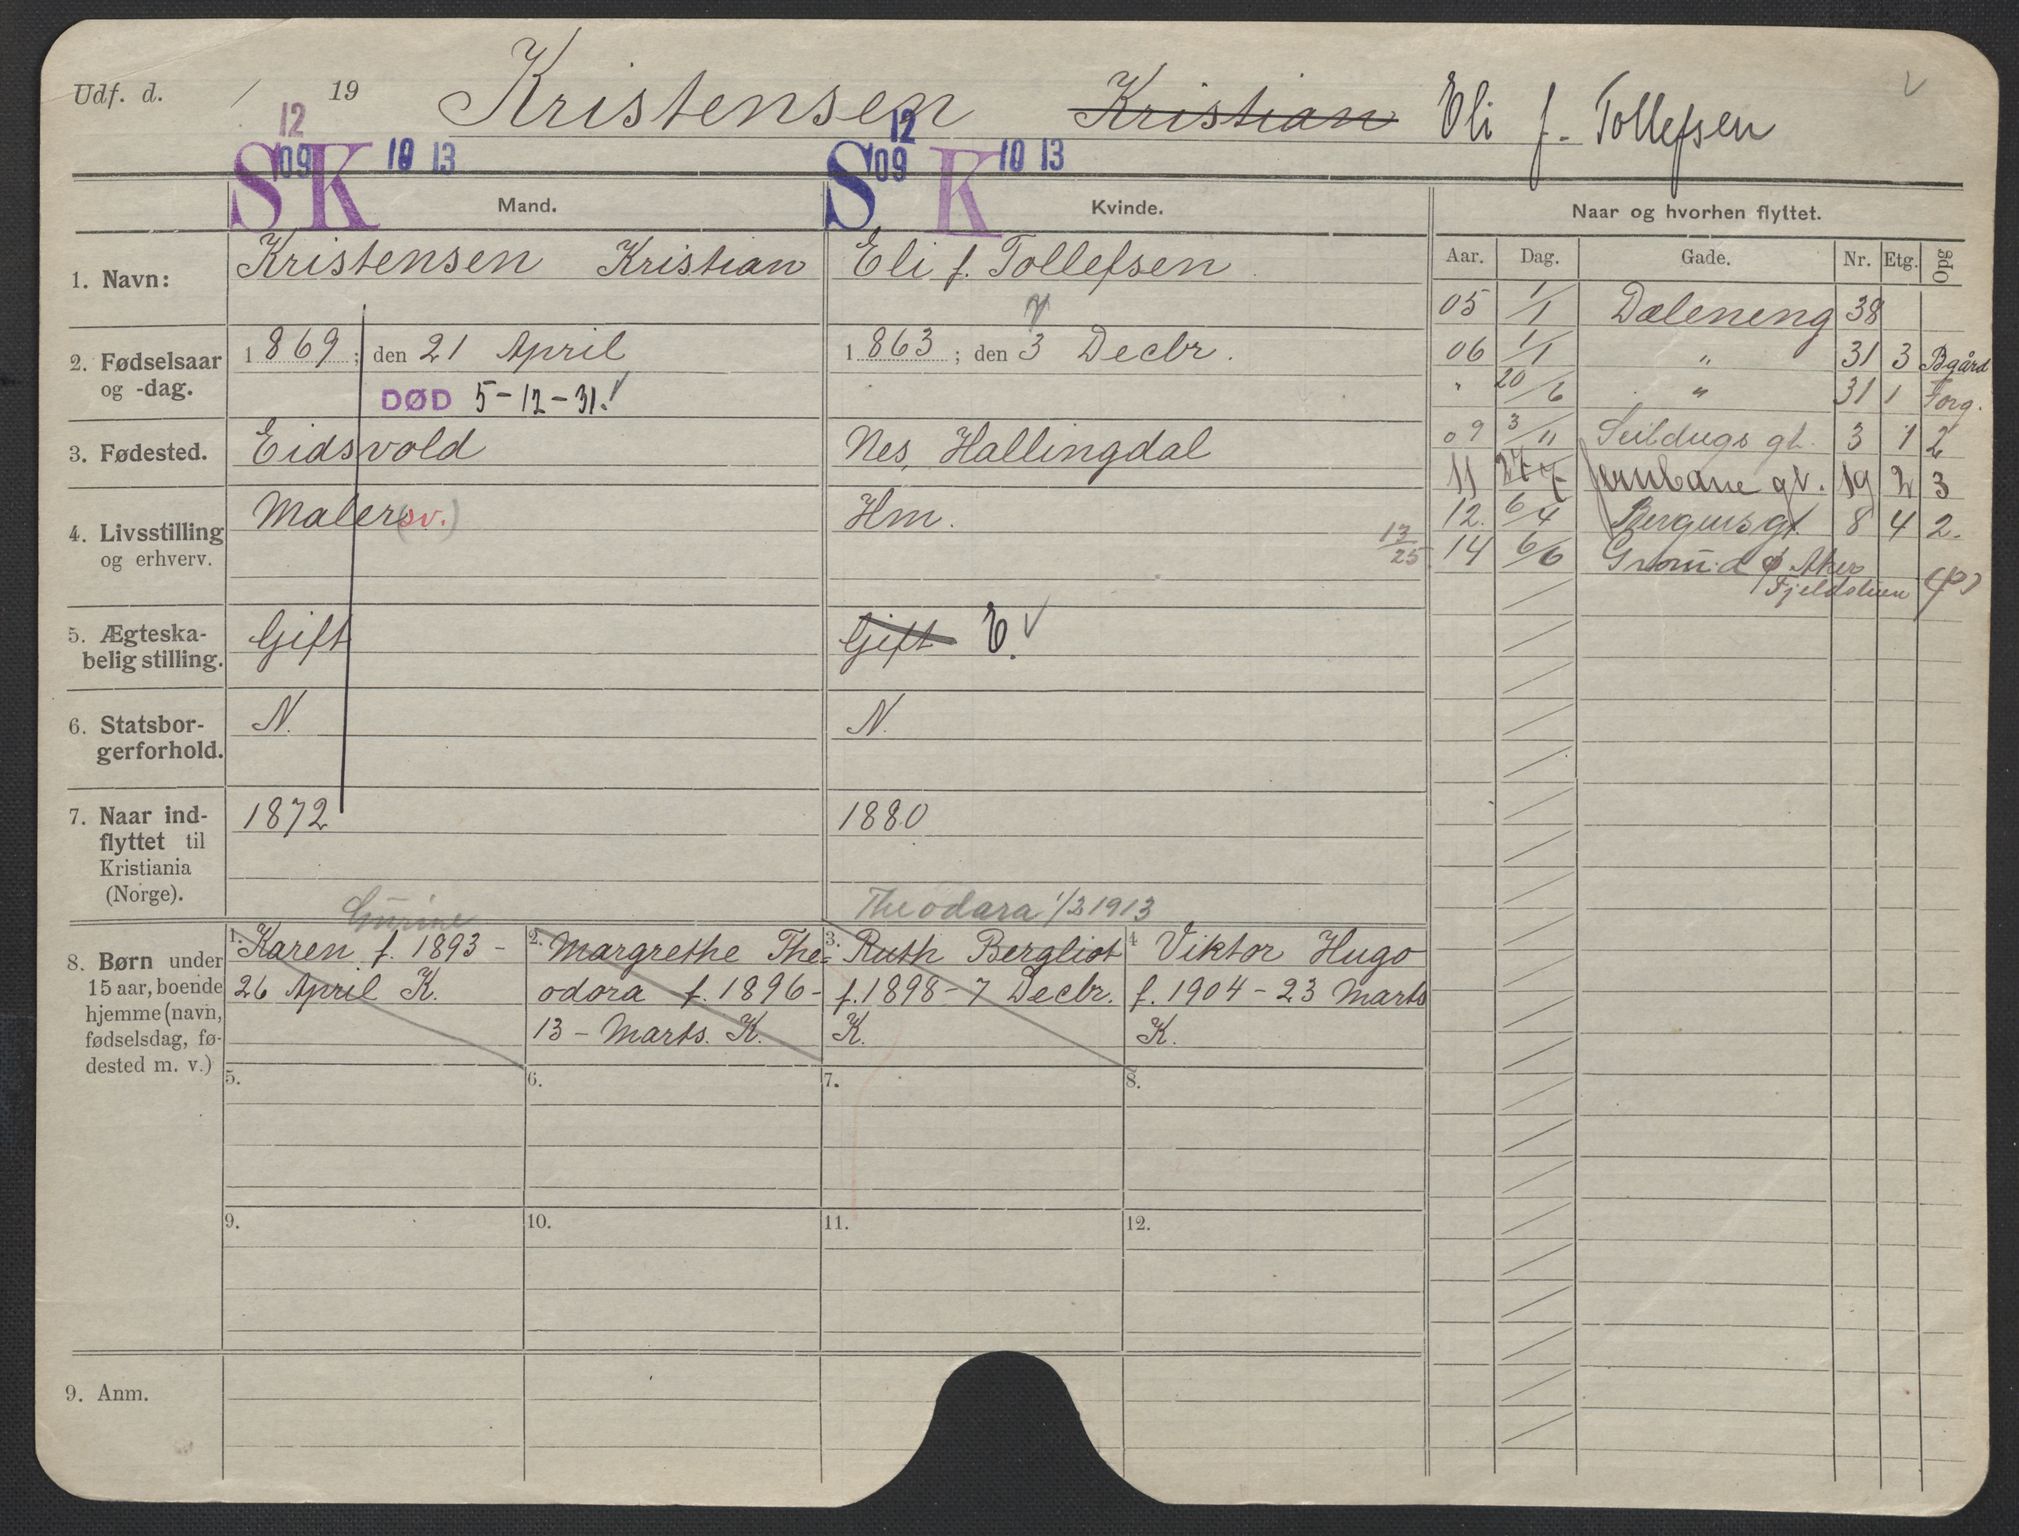 Udf. d. / 19 Kristensen Kristian Eli f. Tollefsen
12 12
SK 09 10 13 S 09 K 10 13
Mand. Kvinde. Naar og hvorhen flyttet.
Aar. Dag. Gade. Nr. Etg. Opg
1. Navn: Kristensen Kristian Eli f. Tollefsen
7
2. Fødselsaar og -dag. 1869; den 21 April 1863; den 3 Decbr.
DØD 5-12-31.
3. Fødested. Eidsvold Nes, Hallingdal
4. Livsstilling og erhverv. Maler(sv.) Hm.
5. Ægteska-
belig stilling. Gift Gift E.
6. Statsbor-
gerforhold. N. N.
7. Naar ind-
flyttet til
Kristiania
(Norge). 1872 1880
05 1/1 Dæleneng 38
06 1/1 " 31 3 Bgård
" 20/6 " 31 1 Forg.
09 3/11 Seildugs gt. 3 1 2
11 27-7 Jernbane gt. 19 2 3
12. 6/4 Bergens gt. 8 4 2.
13/25 14 6/6 Aker
Fjeldstuen (P)
Theodara 1/2 1913
8. Børn under
15 aar, boende
hjemme (navn,
fødselsdag, fø-
dested m. v.)
1. Karen f. 1893 -
26 April K.
2. Margrethe The-
odora f. 1896 -
13 - Marts. K.
3. Ruth Bergliot
f. 1898 - 7 Decbr.
K.
4 Viktor Hugo
f. 1904 - 23 Marts
K.
5. 6. 7. 8.
9. 10. 11. 12.
9. Anm.